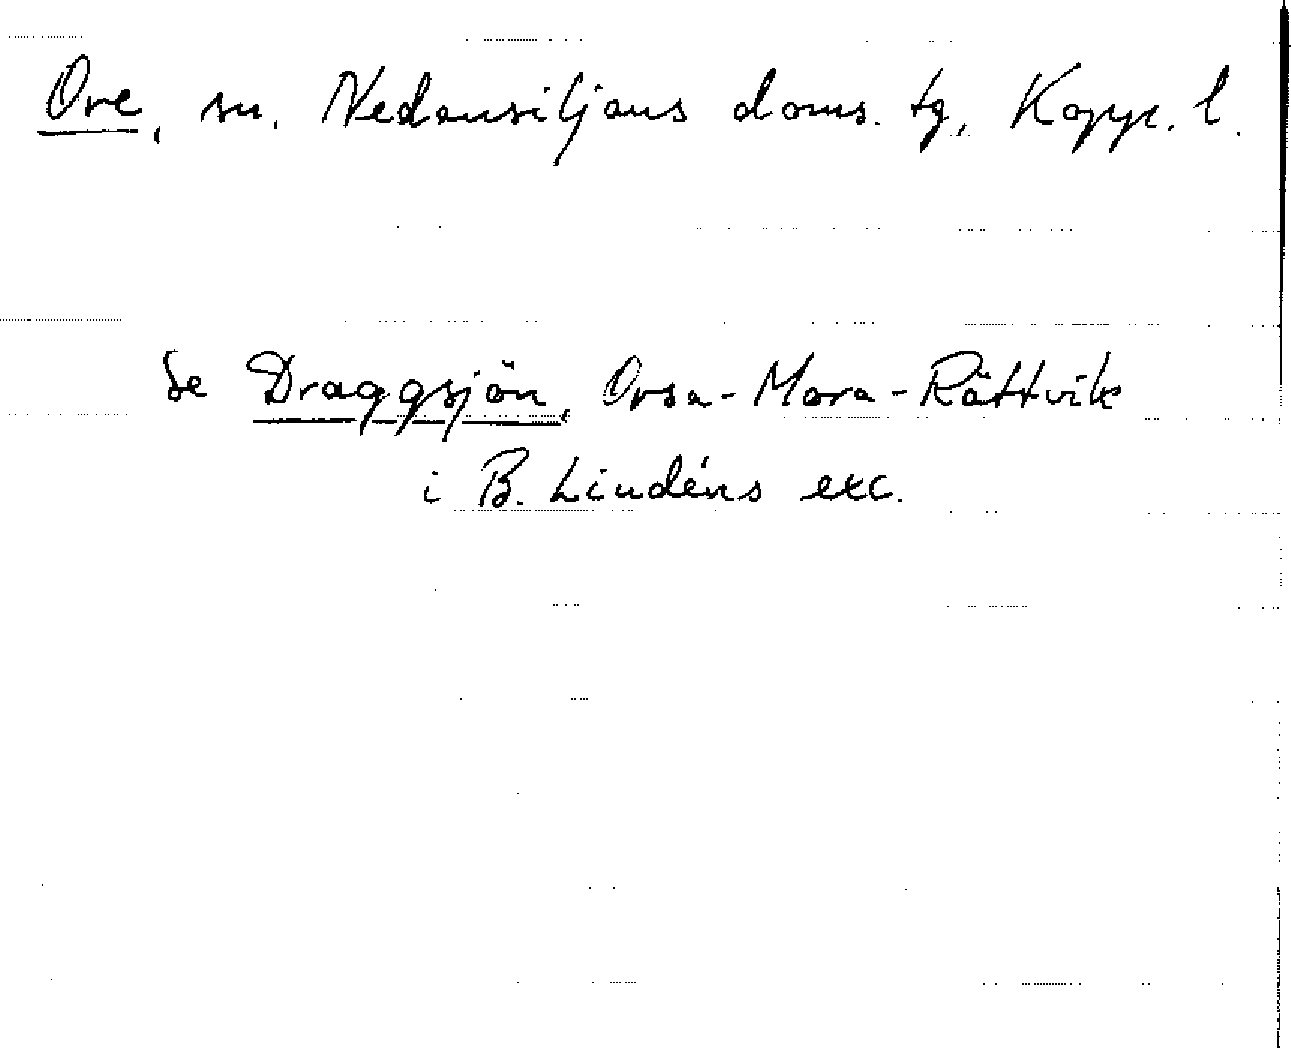 Ore, sn. Nedansiljans doms. tg, Kopp. l.
se Draggsjön, Orsa-Mora-Rättvik
i B. Lindéns exc.